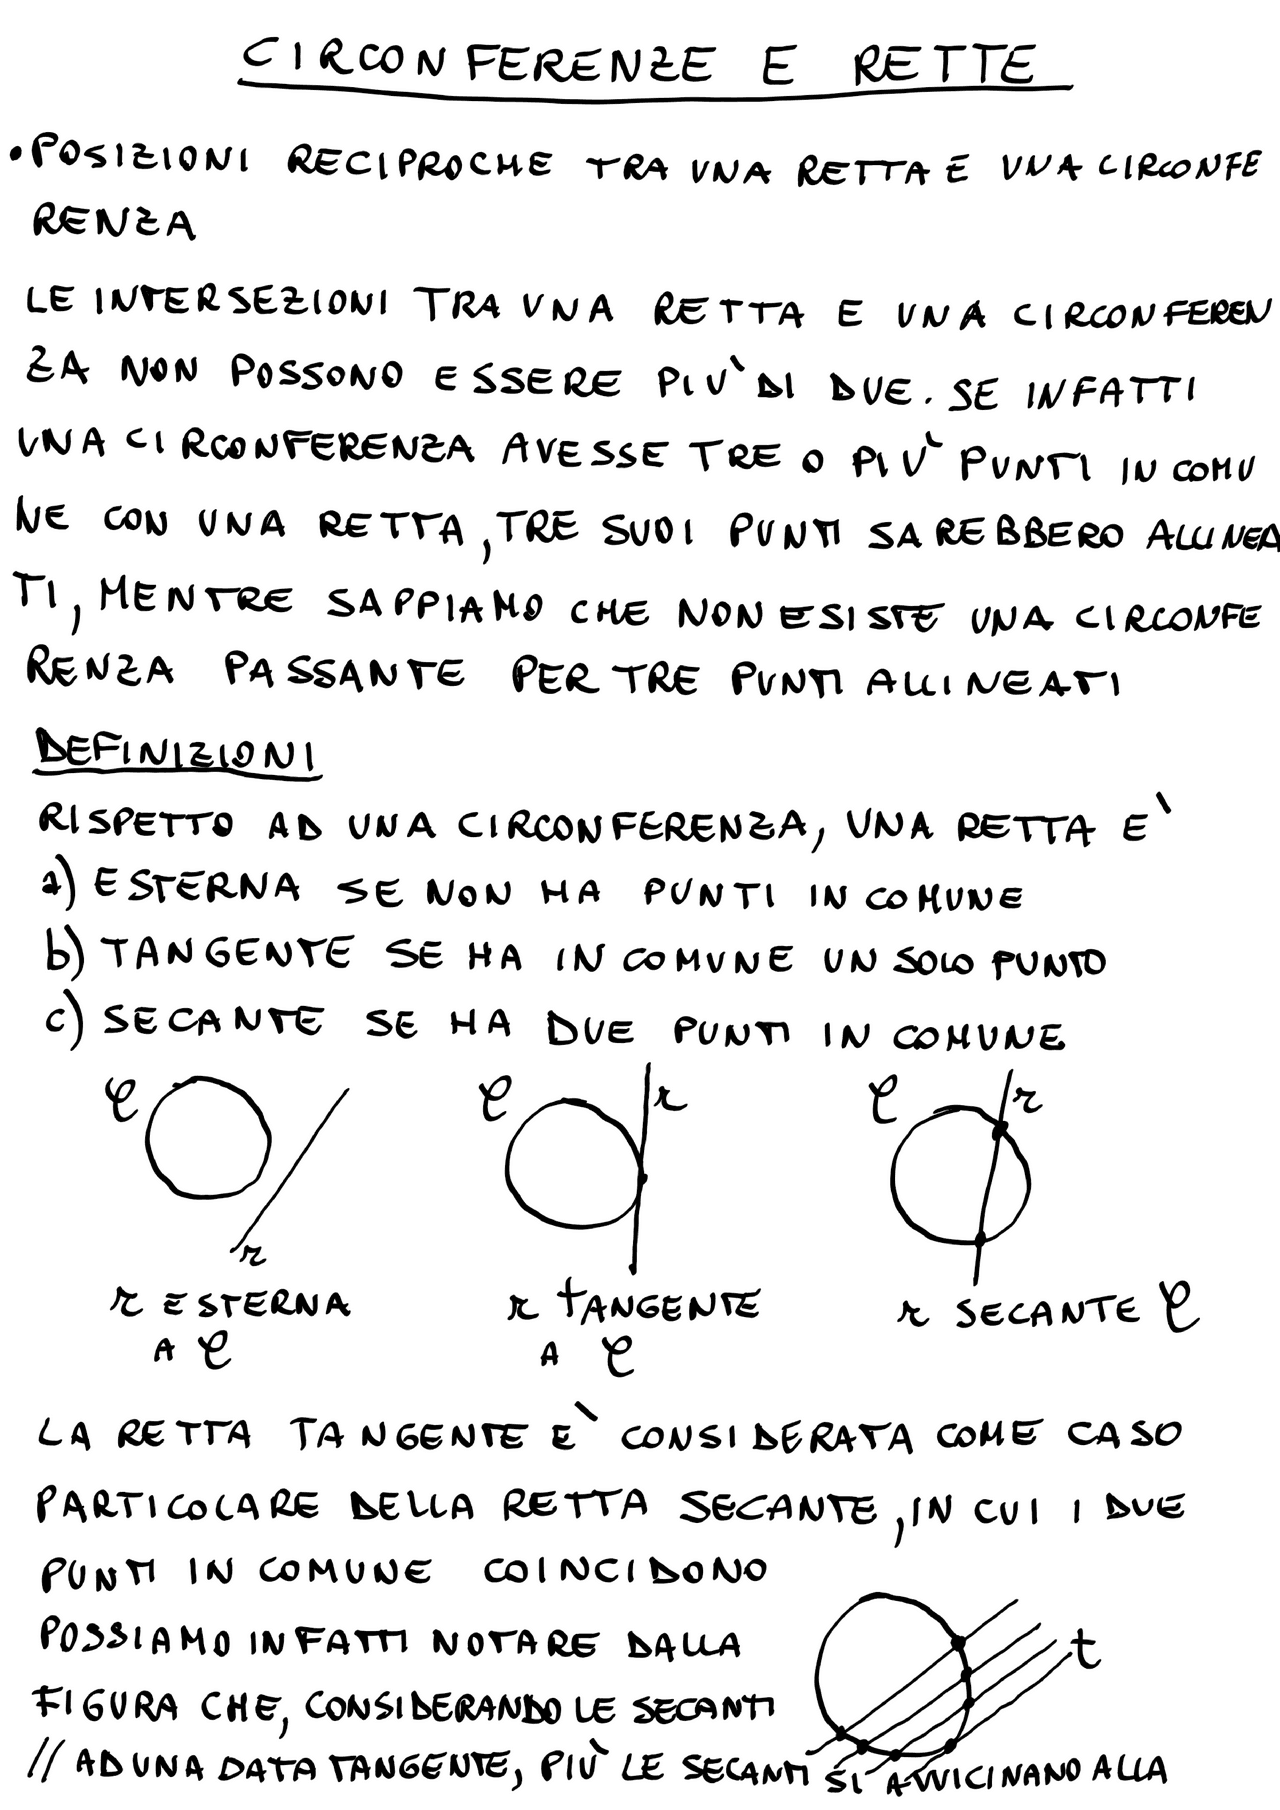 CIRCONFERENZE E RETTE
•POSIZIONI RECIPROCHE TRA UNA RETTA E UNA CIRCONFE
RENZA
LE INTERSEZIONI TRA UNA RETTA E UNA CIRCONFEREN
ZA NON POSSONO ESSERE PIU' DI DUE. SE INFATTI
UNA CIRCONFERENZA AVESSE TRE O PIU' PUNTI IN COMU
NE CON UNA RETTA, TRE SUOI PUNTI SAREBBERO ALLINEA
TI, MENTRE SAPPIAMO CHE NON ESISTE UNA CIRCONFE
RENZA PASSANTE PER TRE PUNTI ALLINEATI
DEFINIZIONI
RISPETTO AD UNA CIRCONFERENZA, UNA RETTA E'
a) ESTERNA SE NON HA PUNTI IN COMUNE
b) TANGENTE SE HA IN COMUNE UN SOLO PUNTO
c) SECANTE SE HA DUE PUNTI IN COMUNE
C r
C r
C r
r ESTERNA
A C
r TANGENTE
A C
r SECANTE C
LA RETTA TANGENTE E' CONSIDERATA COME CASO
PARTICOLARE DELLA RETTA SECANTE, IN CUI I DUE
PUNTI IN COMUNE COINCIDONO
POSSIAMO INFATTI NOTARE DALLA
FIGURA CHE, CONSIDERANDO LE SECANTI
// AD UNA DATA TANGENTE, PIU' LE SECANTI SI AVVICINANO ALLA
t